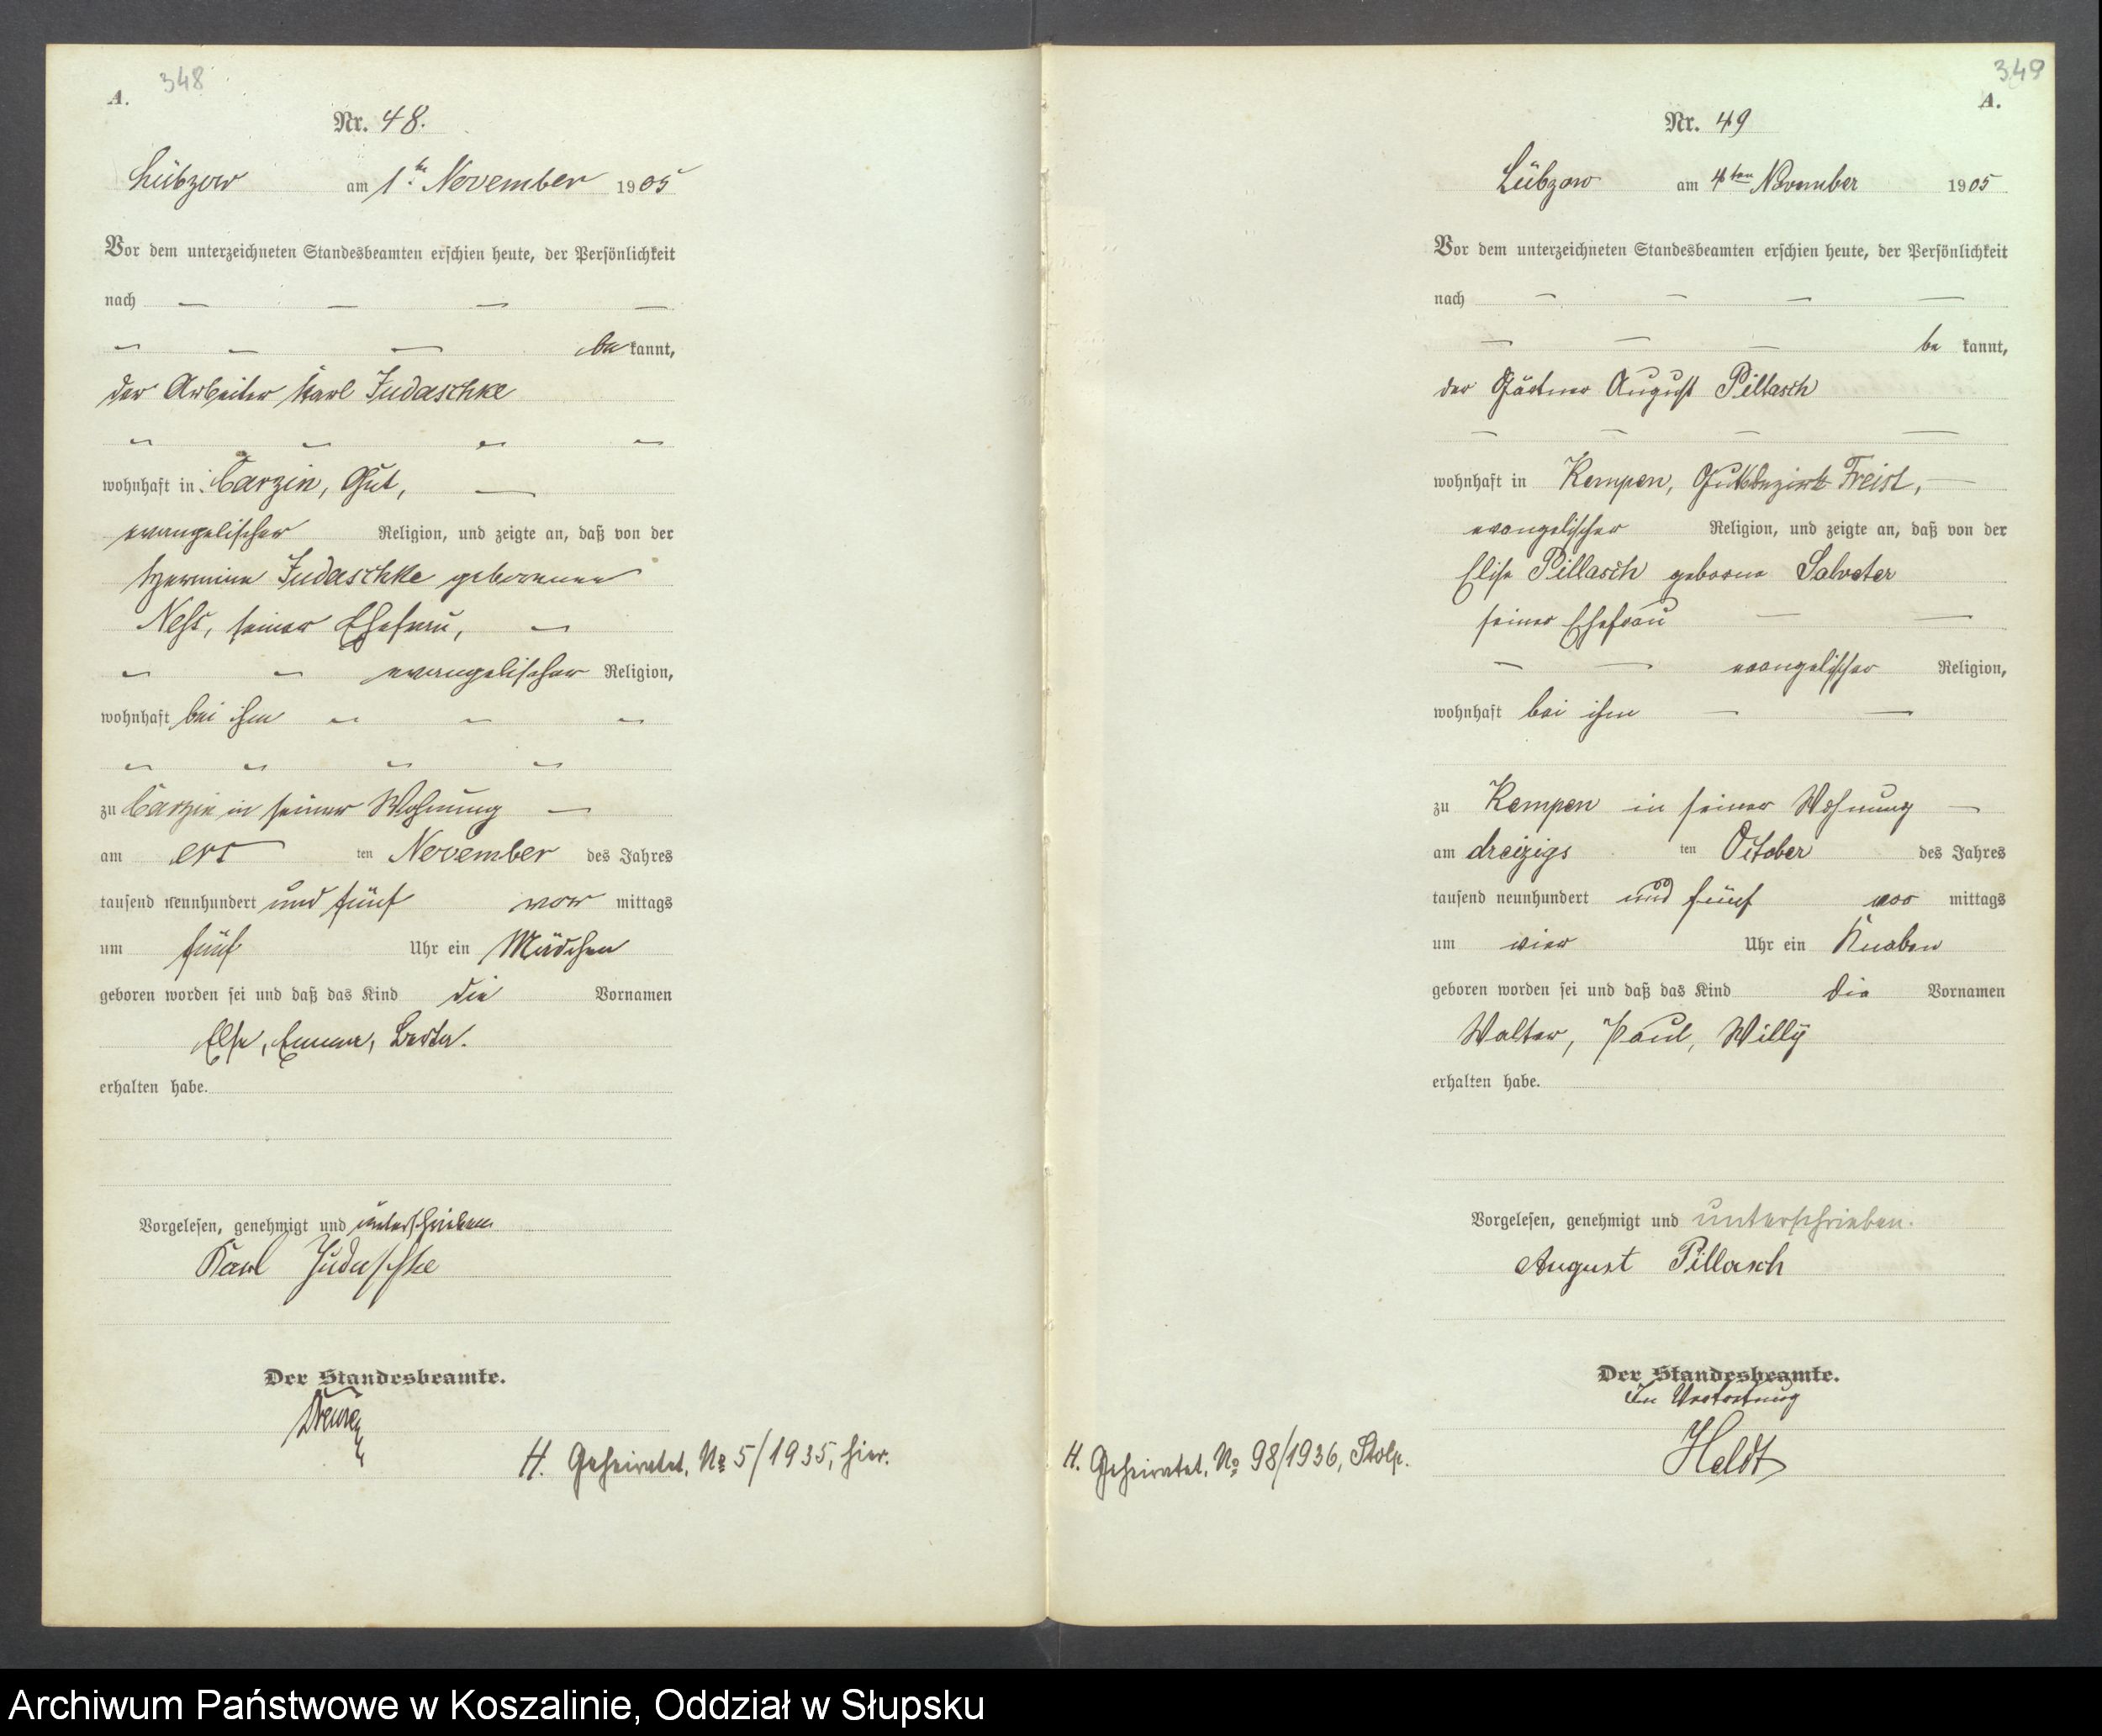 348
A.
Nr. 48.
Lübzow am 1ten November 1905
Vor dem unterzeichneten Standesbeamten erschien heute, der Persönlichkeit
nach — — — —
— — — bekannt,
der Arbeiter Karl Judaschke
— — — —
wohnhaft in Carzin, Gut, —
evangelischer Religion, und zeigte an, daß von der
Hermine Judaschke geborenen
Neß, seiner Ehefrau, —
— — evangelischer Religion,
wohnhaft bei ihm — — —
— — — —
zu Carzin in seiner Wohnung —
am ersten November des Jahres
tausend neunhundert und fünf vormittags
um fünf Uhr ein Mädchen
geboren worden sei und daß das Kind die Vornamen
Else, Emma, Berta.
erhalten habe.
Vorgelesen, genehmigt und unterschrieben
Karl Judaschke
Der Standesbeamte.
H. Geheiratet. No 5/1935, hier.
349
A.
Nr. 49
Lübzow am 4ten November 1905
Vor dem unterzeichneten Standesbeamten erschien heute, der Persönlichkeit
nach — — — —
— — — bekannt,
der Gärtner August Pillasch
— — — —
wohnhaft in Kempen, Gutsbezirk Freist, —
evangelischer Religion, und zeigte an, daß von der
Elise Pillasch geborne Salvater
seiner Ehefrau — —
— — evangelischer Religion,
wohnhaft bei ihm — —
zu Kempen in seiner Wohnung —
am dreizigsten October des Jahres
tausend neunhundert und fünf vormittags
um vier Uhr ein Knaben
geboren worden sei und daß das Kind die Vornamen
Walter, Paul, Willy
erhalten habe.
Vorgelesen, genehmigt und unterschrieben.
August Pillasch
Der Standesbeamte.
In Vertretung
Heldt
H. Geheiratet. No 98/1936, Stolp.
Archiwum Państwowe w Koszalinie, Oddział w Słupsku